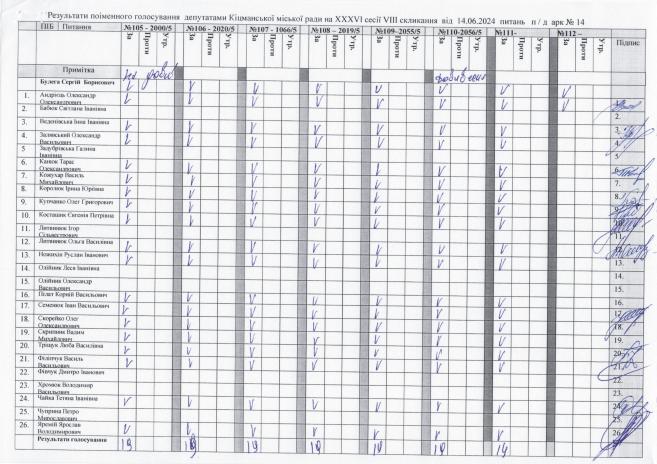 Результати поіменного голосування депутатами Кіцманської міської ради на XXXVI сесії VIII скликання від 14.06.2024 питань п / д арк № 14
ПІБ Питання №105 - 2000/5 №106 - 2020/5 №107 - 1066/5 №108 – 2019/5 №109–2055/5 №110-2056/5 №111- №112 – Підпис
За Проти Утр. За Проти Утр. За Проти Утр. За Проти Утр. За Проти Утр. За Проти Утр. За Проти Утр. За Проти Утр.
Примітка
Булега Сергій Борисович V V V V V V V V
1. Андрієць Олександр Олександрович V V V V V V V V 1.
2. Бабюк Світлана Іванівна 2.
3. Веденівська Інна Іванівна V V V V V V V 3.
4. Залявський Олександр Васильович V V V V V V V 4.
5 Задубрівська Галина Іванівна 5
6. Канюк Тарас Олександрович V V V V V V V 6.
7. Кожухар Василь Михайлович V V V V V V V 7.
8. Королюк Ірина Юріївна V V V V V V V 8.
9. Купчанко Олег Григорович V V V V V V V 9.
10. Косташик Євгенія Петрівна V V V V V V V 10.
11. Литвинюк Ігор Сільвестрович 11.
12. Литвинюк Ольга Василівна V V V V V V V 12.
13. Нежихін Руслан Іванович V V V V V V V 13.
14. Олійник Леся Іванівна 14.
15. Олійник Олександр Васильович 15.
16. Пілат Корній Васильович V V V V V V V 16.
17. Семенюк Іван Васильович V V V V V V V 17.
18. Скорейко Олег Олександрович V V V V V V V 18.
19. Скрипник Вадим Михайлович V V V V V V V 19.
20. Тріщук Люба Василівна V V V V V V V 20.
21. Філіпчук Василь Васильович V V V V V V V 21.
22. Фівчук Дмитро Іванович 22.
23. Хромюк Володимир Васильович 23.
24. Чайка Тетяна Іванівна V V V V V V V 24.
25. Чуприна Петро Мирославович 25.
26. Яремій Ярослав Володимирович V V V V V V V 26.
Результати голосування 19 19 19 19 19 19 19